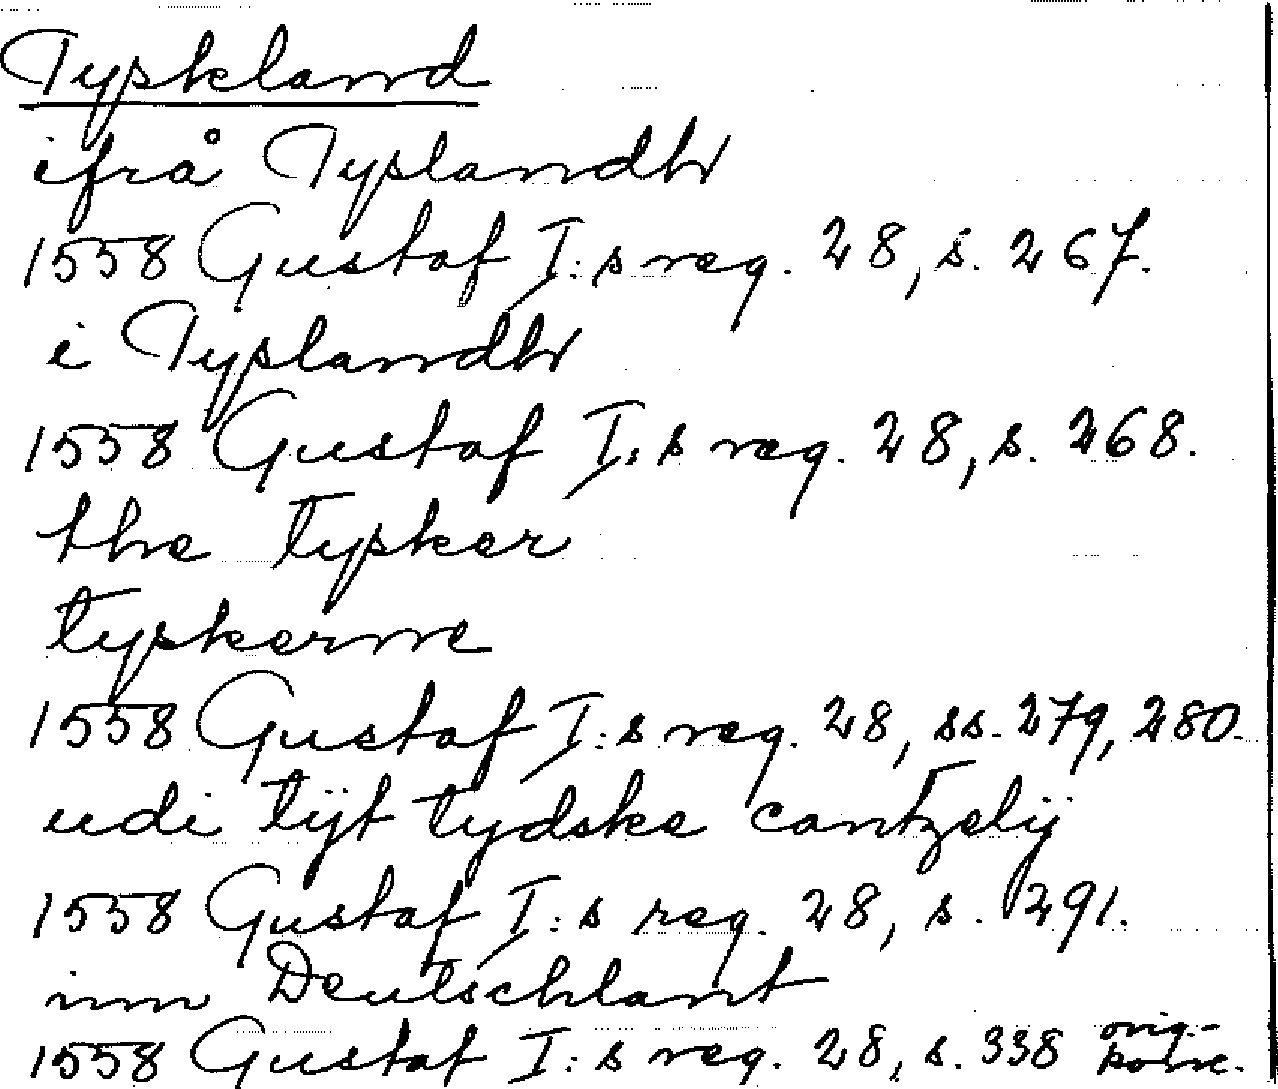 Tyskland
ifrå Tyslandh
1558 Gustaf I:s reg. 28, s. 267.
i Tyslandh
1558 Gustaf I:s reg. 28, s. 268.
the tysker
tyskerne
1558 Gustaf I:s reg. 28, ss. 279, 280.
udi tijt tydske cantzelij
1558 Gustaf I:s reg. 28, s. 291.
inn Deutschlant
1558 Gustaf I:s reg. 28, s. 338 orig.-
konc.